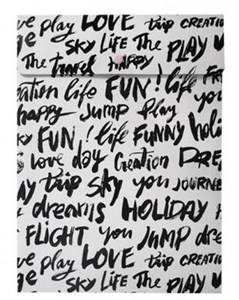 ge play LOVE trip CREATION
SKY LIFE The PLAY
The travel HAPPY
Creation life FUN! life
happy JUMP Play
KY FUN! life FUNNY holi
S Love day Creation DRE
AY trip SKY you JOURNE
dreams HOLIDAY
FLIGHT you JUMP dre
ge play LOVE trip CREATIO
SKY LIFE The PLAY